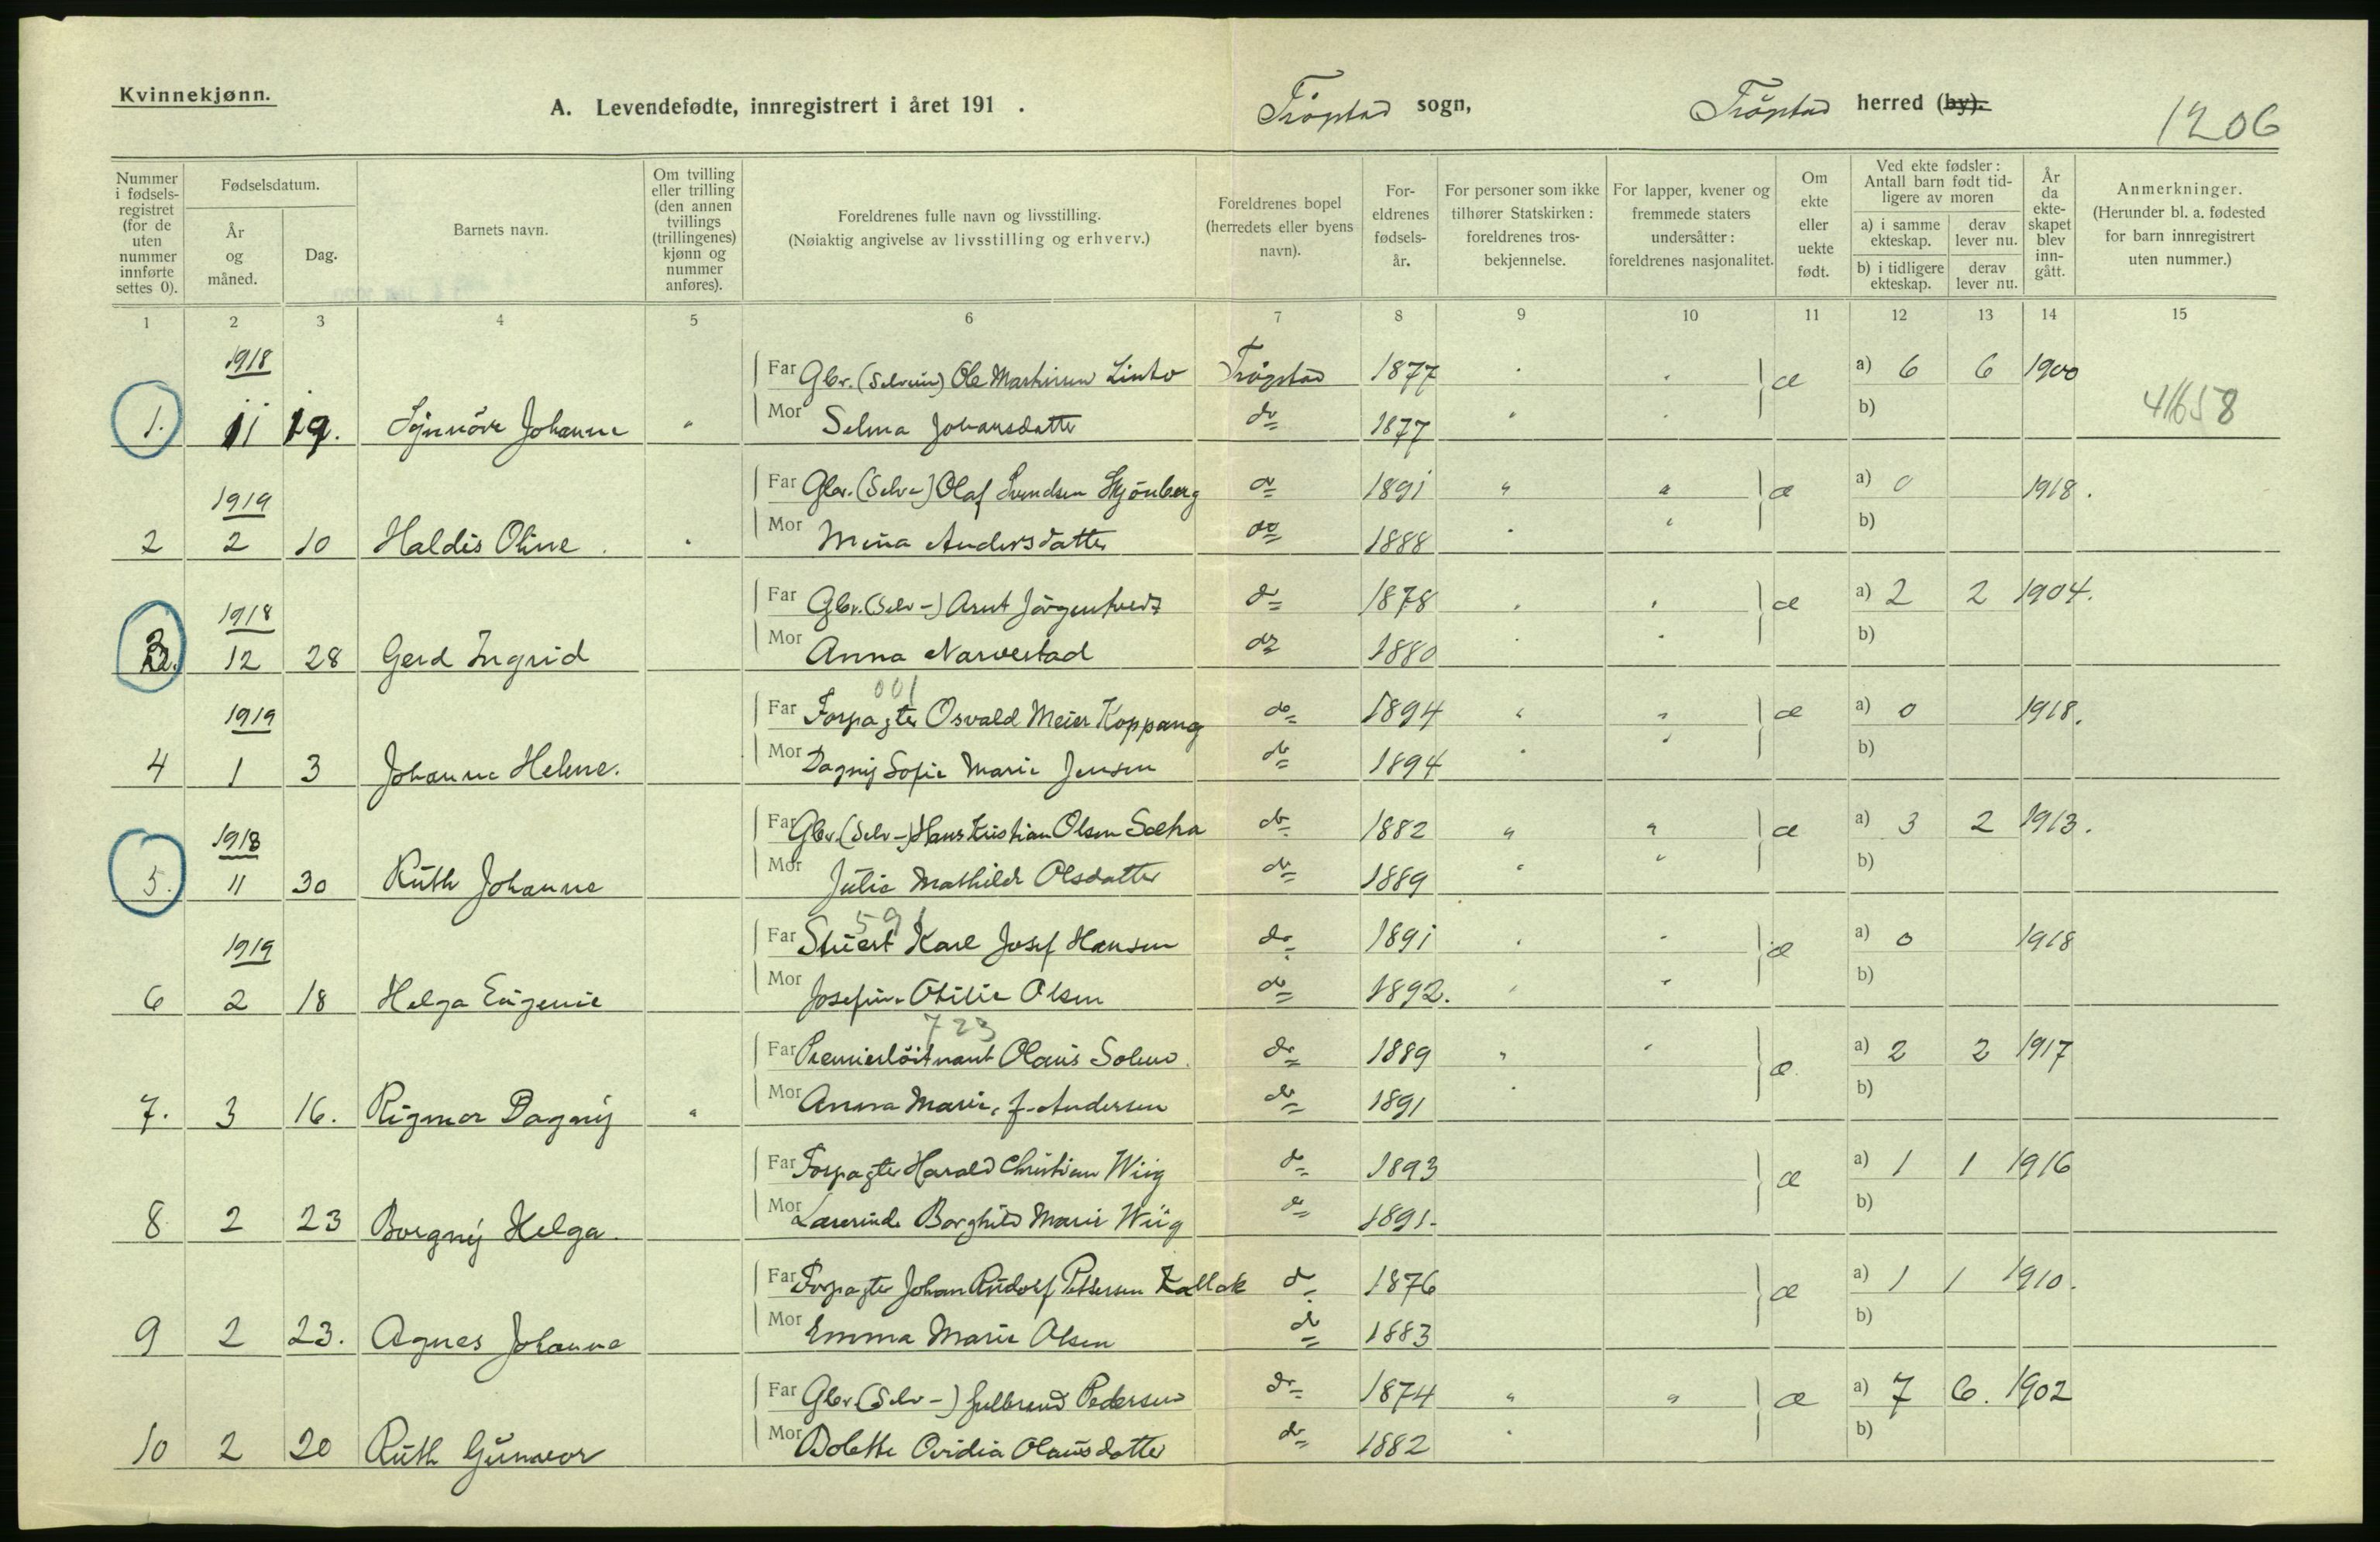 Kvinnekjønn.
A. Levendefødte, innregistrert i året 191 . Trøgstad sogn, Trøgstad herred (by).
1206
Nummer i fødselsregistret (for de uten nummer innførte settes 0).
Fødselsdatum.
År og måned.
Dag.
Barnets navn.
Om tvilling eller trilling (den annen tvillings (trillingenes) kjønn og nummer anføres).
Foreldrenes fulle navn og livsstilling.
(Nøiaktig angivelse av livsstilling og erhverv.)
Foreldrenes bopel (herredets eller byens navn).
Foreldrenes fødselsår.
For personer som ikke tilhører Statskirken: foreldrenes trosbekjennelse.
For lapper, kvener og fremmede staters undersåtter: foreldrenes nasjonalitet.
Om ekte eller uekte født.
Ved ekte fødsler: Antall barn født tidligere av moren
a) i samme ekteskap.
derav lever nu.
b) i tidligere ekteskap.
derav lever nu.
År da ekteskapet blev inngått.
Anmerkninger.
(Herunder bl. a. fødested for barn innregistrert uten nummer.)
1 2 3 4 5 6 7 8 9 10 11 12 13 14 15
1918
Far Gbr. (Selveier) Ole Martinsen Linto Trøgstad 1877 " " æ a) 6 6 1900
1. 11 19. Synnöve Johanne " Mor Selma Johansdatter do 1877 " " b) 41658
1919
Far Gbr. (Selv-) Olaf Svendsen Skjönberg do 1891 " " æ a) 0 1918.
2 2 10 Haldis Oline. " Mor Mina Andersdatter do 1888 " " b)
1918
Far Gbr. (Selv-) Arnt Jörgentvedt do 1878 " " æ a) 2 2 1904.
3 12 28 Gerd Ingrid Mor Anna Narvestad do 1880 " " b)
001
1919
Far Forpagter Osvald Meier Koppang do 1894 " " æ a) 0 1918.
4 1 3 Johanne Helene. Mor Dagny Sofie Marie Jensen do 1894 " " b)
1918
Far Gbr. (Selv-) Hans Kristian Olsen Sætra do 1882 " " æ a) 3 2 1913.
5. 11 30 Ruth Johanne Mor Julie Mathilde Olsdatter do 1889 " " b)
591
1919
Far Stuert Karl Josef Hansen do 1891 " " æ a) 0 1918
6 2 18 Helga Eugenie Mor Josefine Otilie Olsen do 1892. " " b)
723
Far Premierlöitnant Olaus Solum. do 1889 " " æ. a) 2 2 1917
7. 3 16. Rigmor Dagny " Mor Anna Marie, f. Andersen do 1891 " b)
Far Forpagter Harald Christian Wiig do 1893 æ a) 1 1 1916
8 2 23 Borgny Helga. Mor Lærerinde Borghild Marie Wiig do 1891. b)
Far Forpagter Johan Rudolf Pettersen Kallak do 1876 æ a) 1 1 1910.
9 2 23. Agnes Johanne Mor Emma Marie Olsen do 1883 b)
Far Gbr. (Selv-) Gulbrand Pedersen do 1874 " " æ a) 7 6. 1902
10 2 20 Ruth Gunvor Mor Bolette Ovidia Olausdatter do 1882 " b)